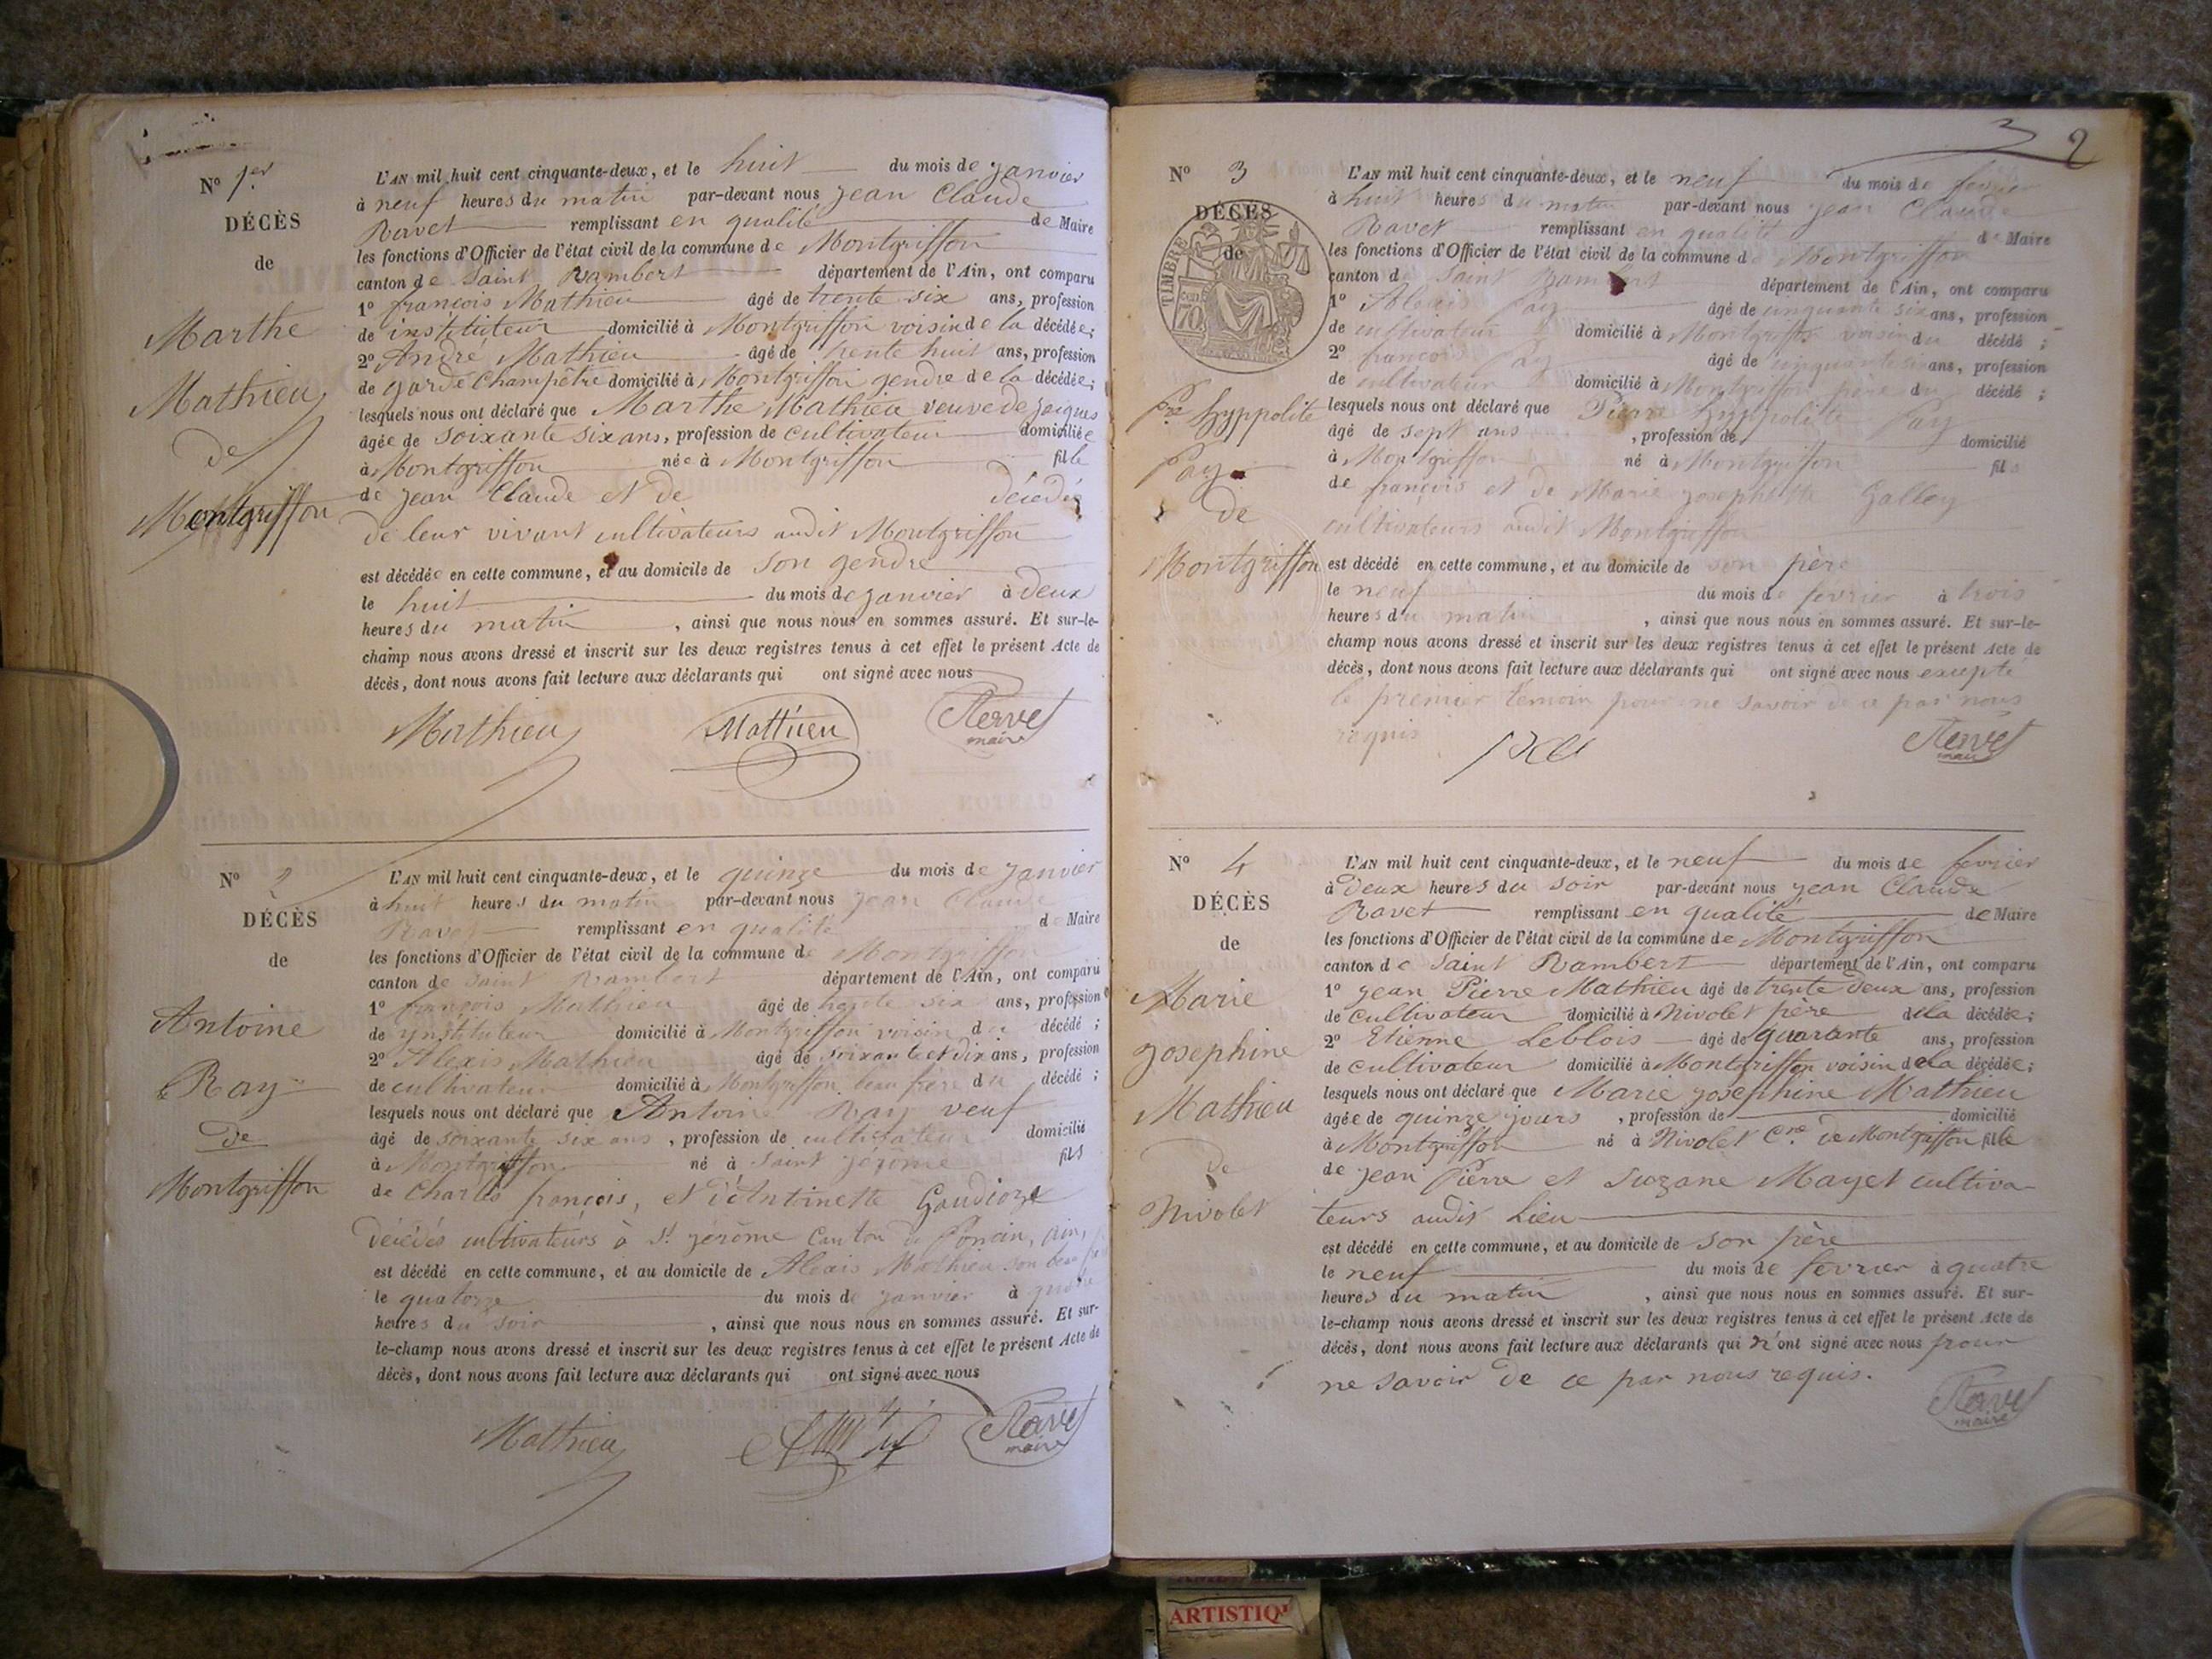 N° 1er
DÉCÈS
de
Marthe
Mathieu
de
Montgriffon
L'AN mil huit cent cinquante-deux, et le huit du mois de janvier
à neuf heures du matin par-devant nous jean Claude
Ravet remplissant en qualité de Maire
les fonctions d'Officier de l'état civil de la commune de Montgriffon
canton de Saint Rambert département de l'Ain, ont comparu
1° françois Mathieu âgé de trente six ans, profession
de instituteur domicilié à Montgriffon voisin de la décédée;
2° André Mathieu âgé de trente huit ans, profession
de garde Champêtre domicilié à Montgriffon gendre de la décédée;
lesquels nous ont déclaré que Marthe Mathieu veuve de jaiques
âgée de soixante six ans, profession de cultivateur domiciliée
à Montgriffon née à Montgriffon fille
de jean Claude et de décédés
de leur vivant cultivateurs audit Montgriffon
est décédée en cette commune, et au domicile de son gendre
le huit du mois de janvier à deux
heures du matin, ainsi que nous nous en sommes assuré. Et sur-le-
champ nous avons dressé et inscrit sur les deux registres tenus à cet effet le présent Acte de
décès, dont nous avons fait lecture aux déclarants qui ont signé avec nous
Mathieu Mathieu Ravet
maire
N° 2
DÉCÈS
de
Antoine
Ray
de
Montgriffon
L'AN mil huit cent cinquante-deux, et le quinze du mois de janvier
à huit heures du matin par-devant nous jean Claude
Ravet remplissant en qualité de Maire
les fonctions d'Officier de l'état civil de la commune de Montgriffon
canton de Saint Rambert département de l'Ain, ont comparu
1° françois Mathieu âgé de trente six ans, profession
de ynstituteur domicilié à Montgriffon voisin du décédé;
2° Alexis Mathieu âgé de soixante et dix ans, profession
de cultivateur domicilié à Montgriffon beau frère du décédé;
lesquels nous ont déclaré que Antoine Ray veuf
âgé de soixante six ans, profession de cultivateur domicilié
à Montgriffon né à Saint jérôme fils
de Charles françois, et d'Antoinette Gaudioze
décédés cultivateurs à St. jérôme Canton de Poncin, Ain,
est décédé en cette commune, et au domicile de Alexis Mathieu son beau
le quatorze du mois de janvier à
heures du soir, ainsi que nous nous en sommes assuré. Et sur-
le-champ nous avons dressé et inscrit sur les deux registres tenus à cet effet le présent Acte de
décès, dont nous avons fait lecture aux déclarants qui ont signé avec nous
Mathieu Ravet
maire
3 2
N° 3
DÉCÈS
de
TIMBRE
70
Pre hyppolite
Pay
de
Montgriffon
L'AN mil huit cent cinquante-deux, et le neuf du mois de fevrier
à huit heures du matin par-devant nous jean Claude
Ravet remplissant en qualité de Maire
les fonctions d'Officier de l'état civil de la commune de Montgriffon
canton de Saint Rambert département de l'Ain, ont comparu
1° Alexis Pay âgé de cinquante six ans, profession
de cultivateur domicilié à Montgriffon voisin du décédé;
2° françois Pay âgé de cinquante six ans, profession
de cultivateur domicilié à Montgriffon père du décédé;
lesquels nous ont déclaré que Pierre hyppolite Pay
âgé de sept ans, profession de domicilié
à Montgriffon né à Montgriffon fils
de françois et de Marie josephette Galley
cultivateurs audit Montgriffon
est décédé en cette commune, et au domicile de son père
le neuf du mois de fevrier à trois
heures du matin, ainsi que nous nous en sommes assuré. Et sur-le-
champ nous avons dressé et inscrit sur les deux registres tenus à cet effet le présent Acte de
décès, dont nous avons fait lecture aux déclarants qui ont signé avec nous excepté
le premier temoin pour ne savoir de ce par nous
requis
Ravet
maire
N° 4
DÉCÈS
de
Marie
josephine
Mathieu
de
Nivolet
L'AN mil huit cent cinquante-deux, et le neuf du mois de fevrier
à deux heures du soir par-devant nous jean Claude
Ravet remplissant en qualité de Maire
les fonctions d'Officier de l'état civil de la commune de Montgriffon
canton de Saint Rambert département de l'Ain, ont comparu
1° jean Pierre Mathieu âgé de trente deux ans, profession
de cultivateur domicilié à Nivolet père de la décédée;
2° Etienne Leblois âgé de quarante ans, profession
de cultivateur domicilié à Montgriffon voisin de la décédée;
lesquels nous ont déclaré que Marie josephine Mathieu
âgée de quinze jours, profession de domicilié
à Montgriffon né à Nivolet Cne de Montgriffon fille
de jean Pierre et Suzane Mayet cultiva-
teurs audit Lieu
est décédé en cette commune, et au domicile de son père
le neuf du mois de fevrier à quatre
heures du matin, ainsi que nous nous en sommes assuré. Et sur-
le-champ nous avons dressé et inscrit sur les deux registres tenus à cet effet le présent Acte de
décès, dont nous avons fait lecture aux déclarants qui n'ont signé avec nous pour
ne savoir de ce par nous requis.
Ravet
maire
ARTISTIQ